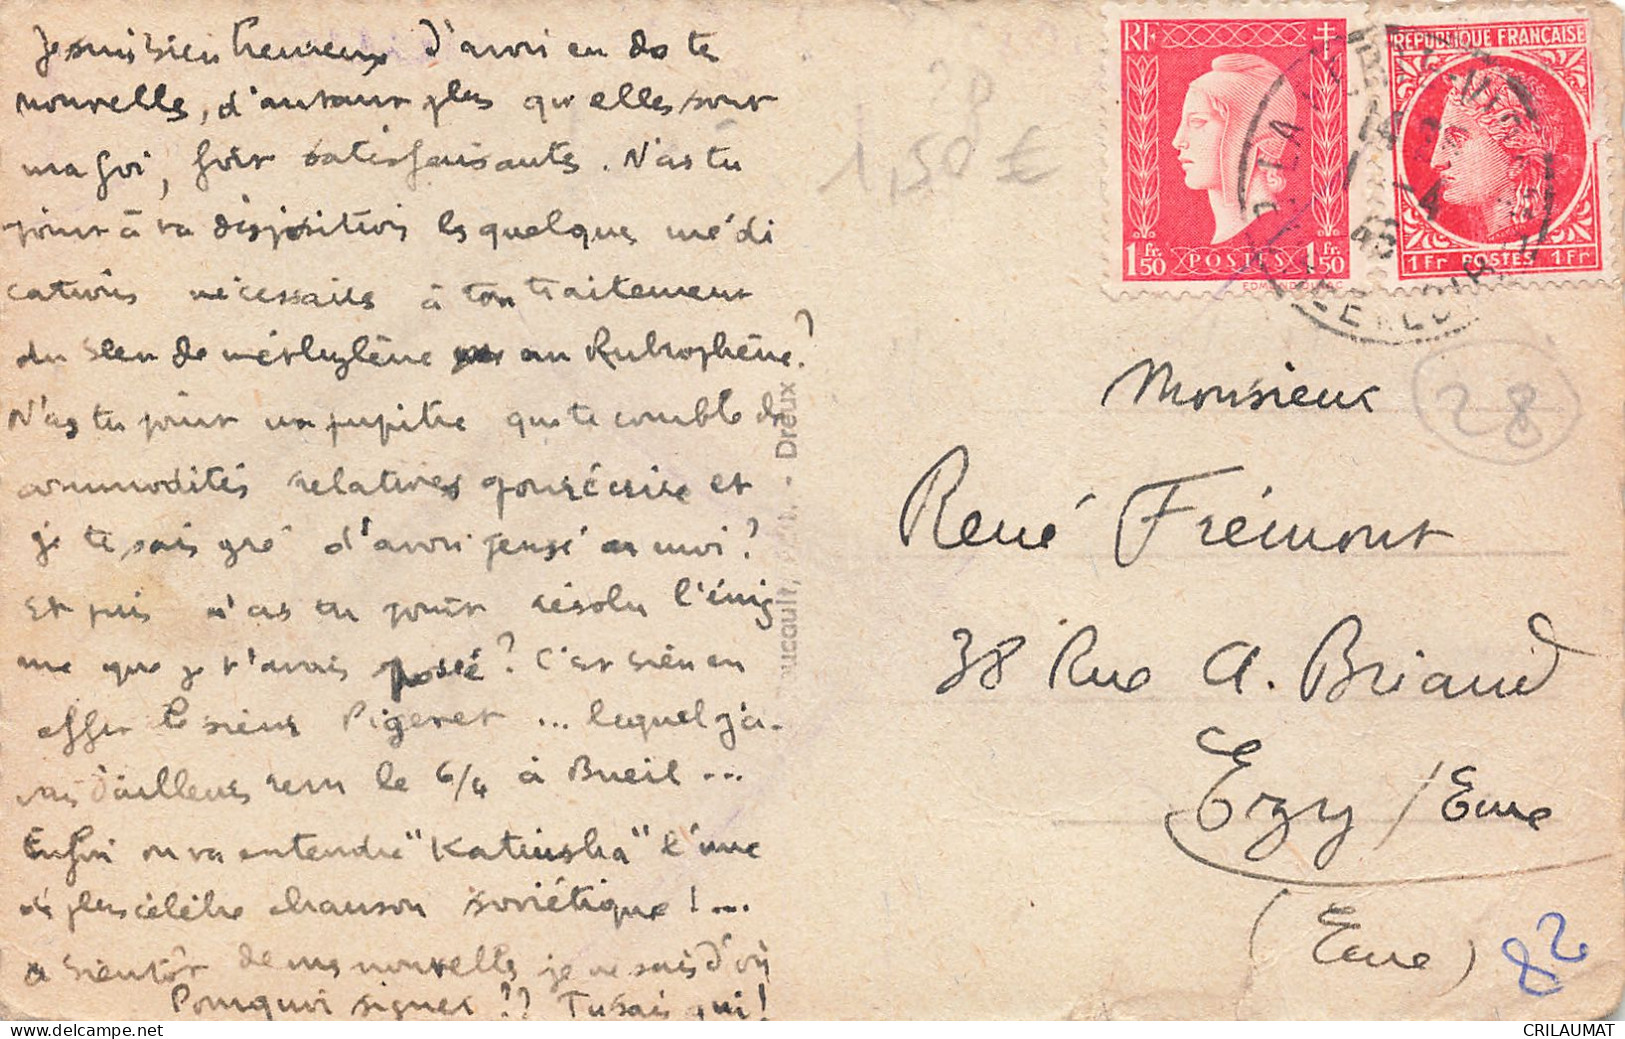 Je suis bien heureux d'avoir eu de te
nouvelles, d'autant plus qu'elles sont
ma foi, fort satisfaisantes. N'as tu
point à ta disposition les quelques médi
cations nécessaires à ton traitement
du bleu de méthylène au Rubrophène?
N'as tu point un pupitre qui te comble de
commodités relatives pour écrire et
je te sais gré d'avoir pensé à moi?
Et puis n'as tu point résolu l'énig
me que je t'avais posée? C'est bien en
effet le sieur Pigeret ... lequel j'a-
vais d'ailleurs vu le 6/4 à Bueil ...
Enfin on va entendre "Katiusha" l'une
des plus célèbre chanson soviétique! ...
à bientôt de mes nouvelles je ne sais d'où
Pourquoi signer?? Tu sais qui!
Dreux
1,50 €
RF
1 Fr. 50 POSTES 1 Fr. 50
EDMOND DULAC
REPUBLIQUE FRANCAISE
1 Fr POSTES 1 Fr
14
1 -4
46
28
Monsieur
René Frémont
38 Rue A. Briand
Ezy / Eure
(Eure)
82
CRILAUMAT